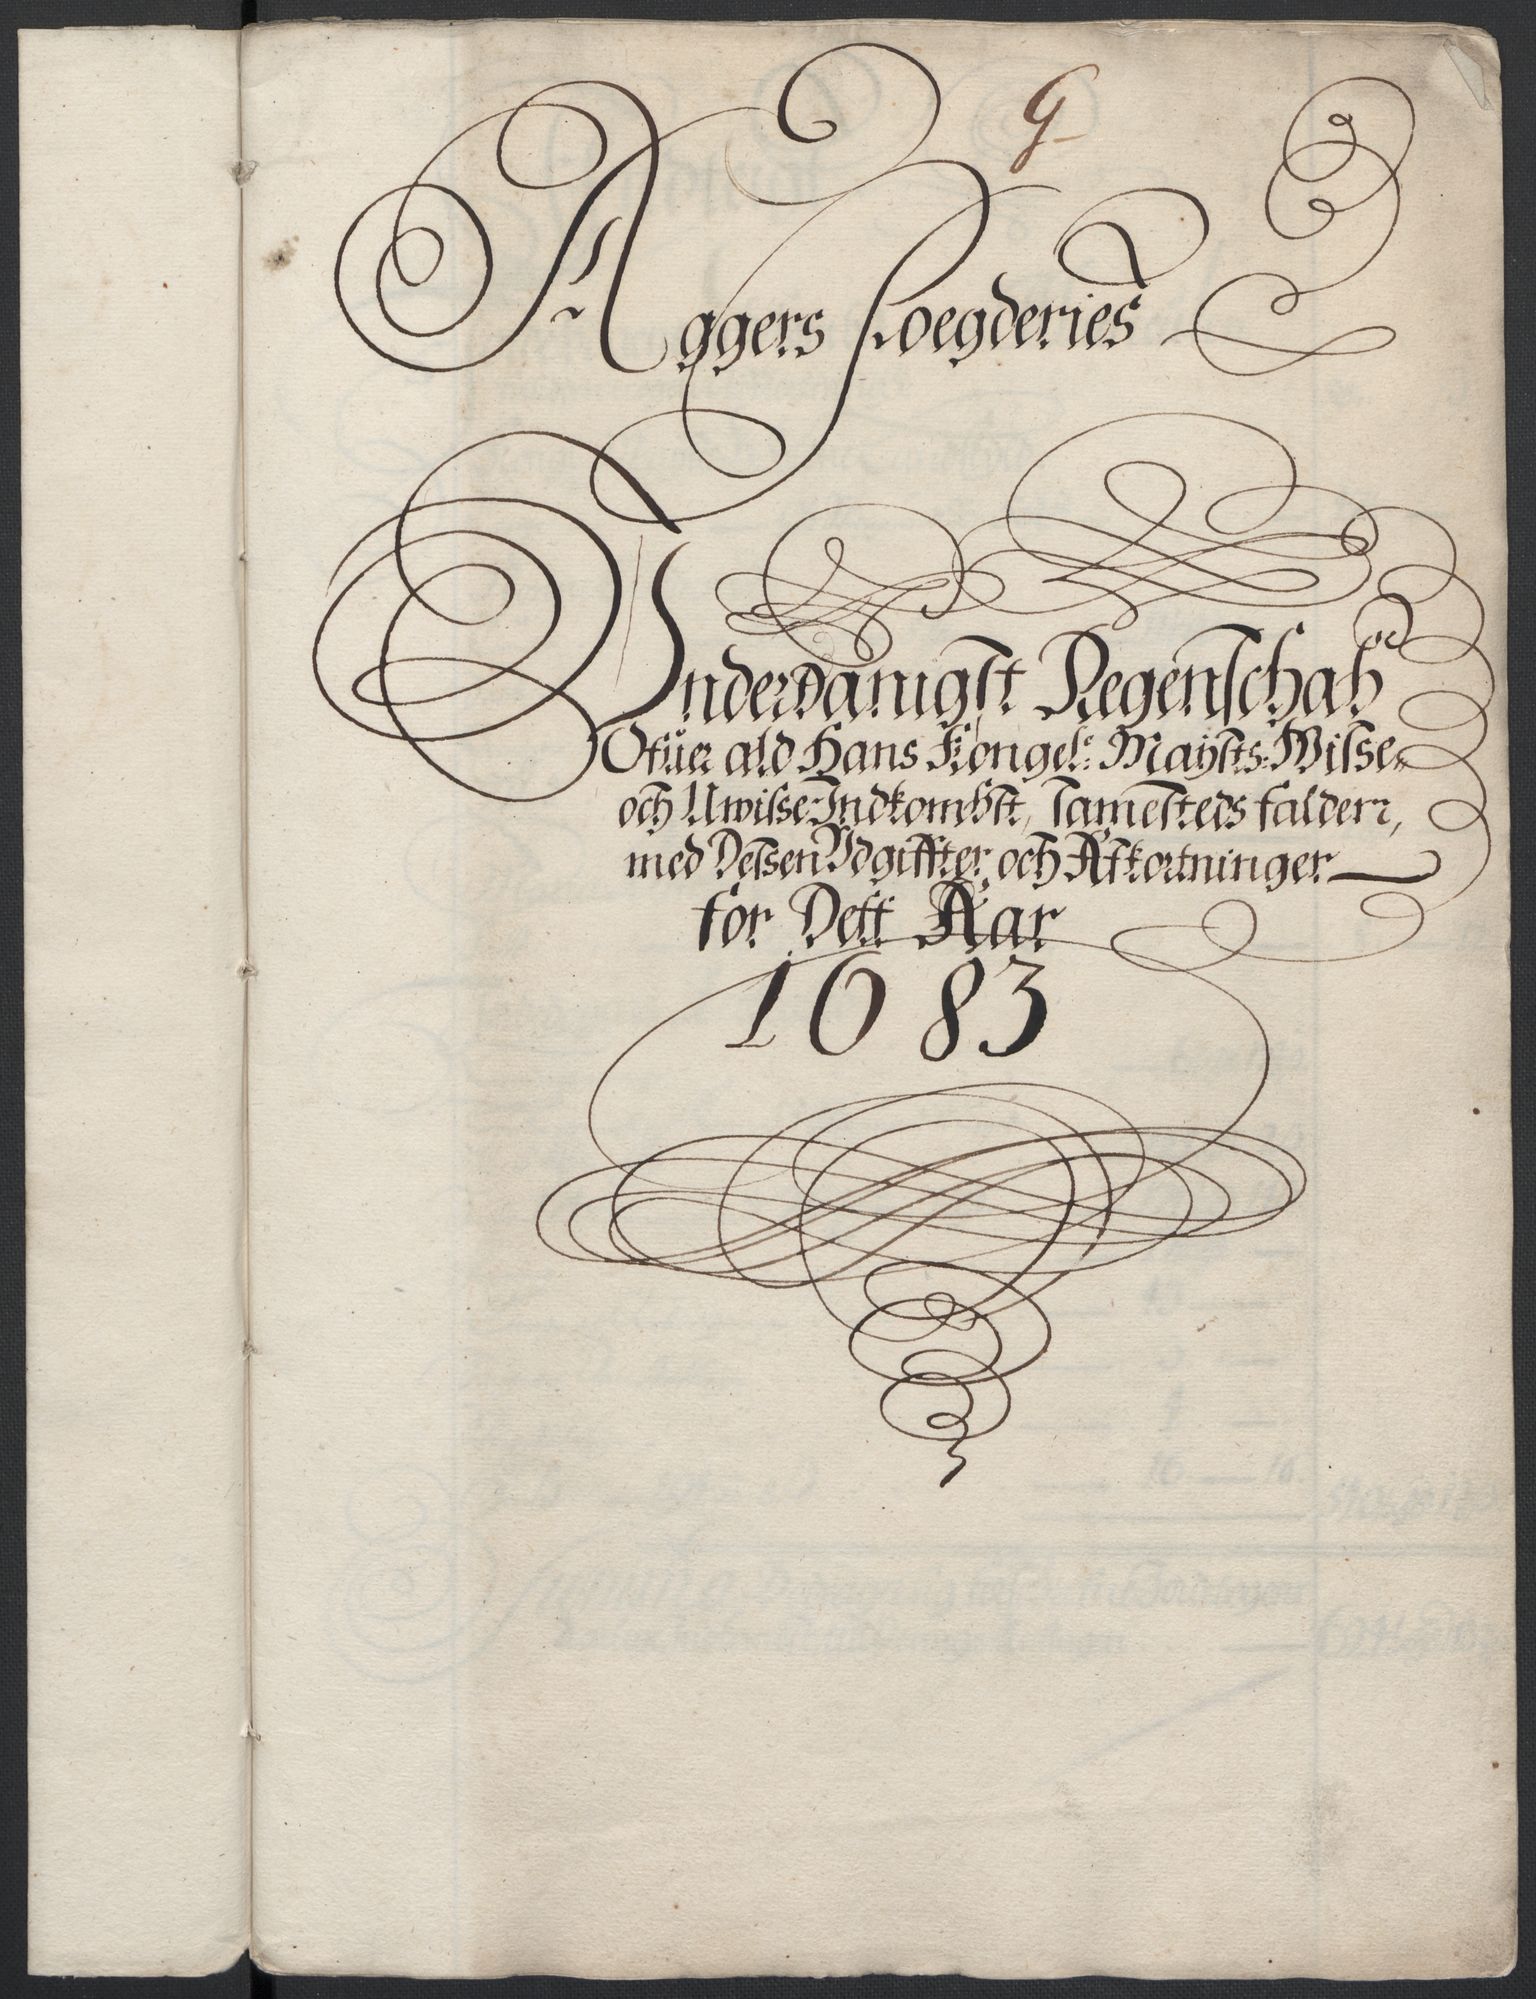 G
Aggers Foegderies
Underdanigst Regenschab
Ofuer ald Hans Kongel: Maÿsts: Wisse
och Uwisse Indkombst, sammesteds falder,
med Dessen Udgiffter och Afkortninger
for Dett Aar
1683